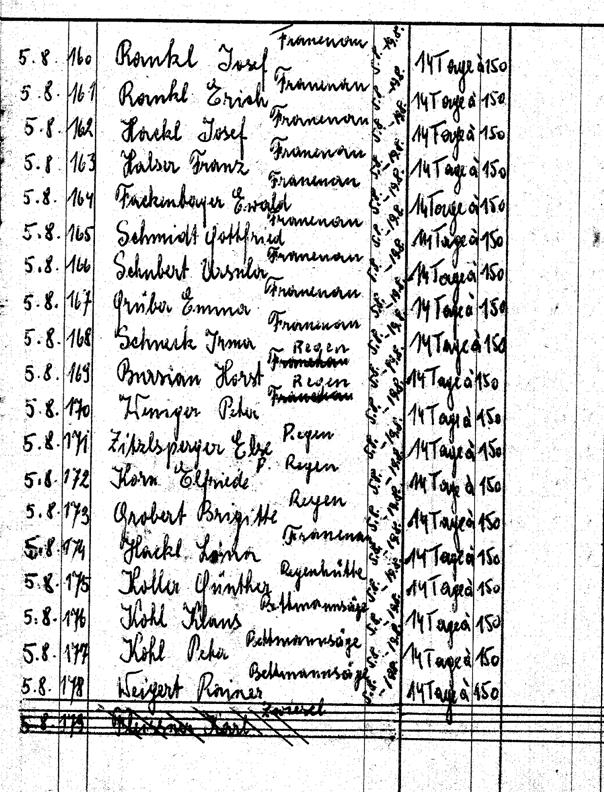 5.8. 160 Rankl Josef Frauenau 5.8.-19.8. 14 Tage à 1.50
5.8. 161 Rankl Erich Frauenau 5.8.-19.8. 14 Tage à 1.50
5.8. 162 Hackl Josef Frauenau 5.8.-19.8. 14 Tage à 1.50
5.8. 163 Halser Franz Frauenau 5.8.-19.8. 14 Tage à 1.50
5.8. 164 Fackenbayer Ewald Frauenau 5.8.-19.8. 14 Tage à 1.50
5.8. 165 Schmidt Gottfried Frauenau 5.8.-19.8. 14 Tage à 1.50
5.8. 166 Schubert Ursula Frauenau 5.8.-19.8. 14 Tage à 1.50
5.8. 167 Gruber Emma Frauenau 5.8.-19.8. 14 Tage à 1.50
5.8. 168 Schneck Irma Frauenau 5.8.-19.8. 14 Tage à 1.50
5.8. 169 Bursian Horst Regen Frauenau 5.8.-19.8. 14 Tage à 1.50
5.8. 170 Weniger Peter Regen Frauenau 5.8.-19.8. 14 Tage à 1.50
5.8. 171 Zitzlsperger Else Regen 5.8.-19.8. 14 Tage à 1.50
5.8. 172 Korn Elfriede Regen 5.8.-19.8. 14 Tage à 1.50
5.8. 173 Grobert Brigitte Regen 5.8.-19.8. 14 Tage à 1.50
5.8. 174 Hackl Frauenau 5.8.-19.8. 14 Tage à 1.50
5.8. 175 Koller Günther Regenhütte 5.8.-19.8. 14 Tage à 1.50
5.8. 176 Kohl Klaus Bettmannsäge 5.8.-19.8. 14 Tage à 1.50
5.8. 177 Kohl Peter Bettmannsäge 5.8.-19.8. 14 Tage à 1.50
5.8. 178 Weigert Rainer Bettmannsäge 5.8.-19.8. 14 Tage à 1.50
5.8. 179 Karl Zwiesel